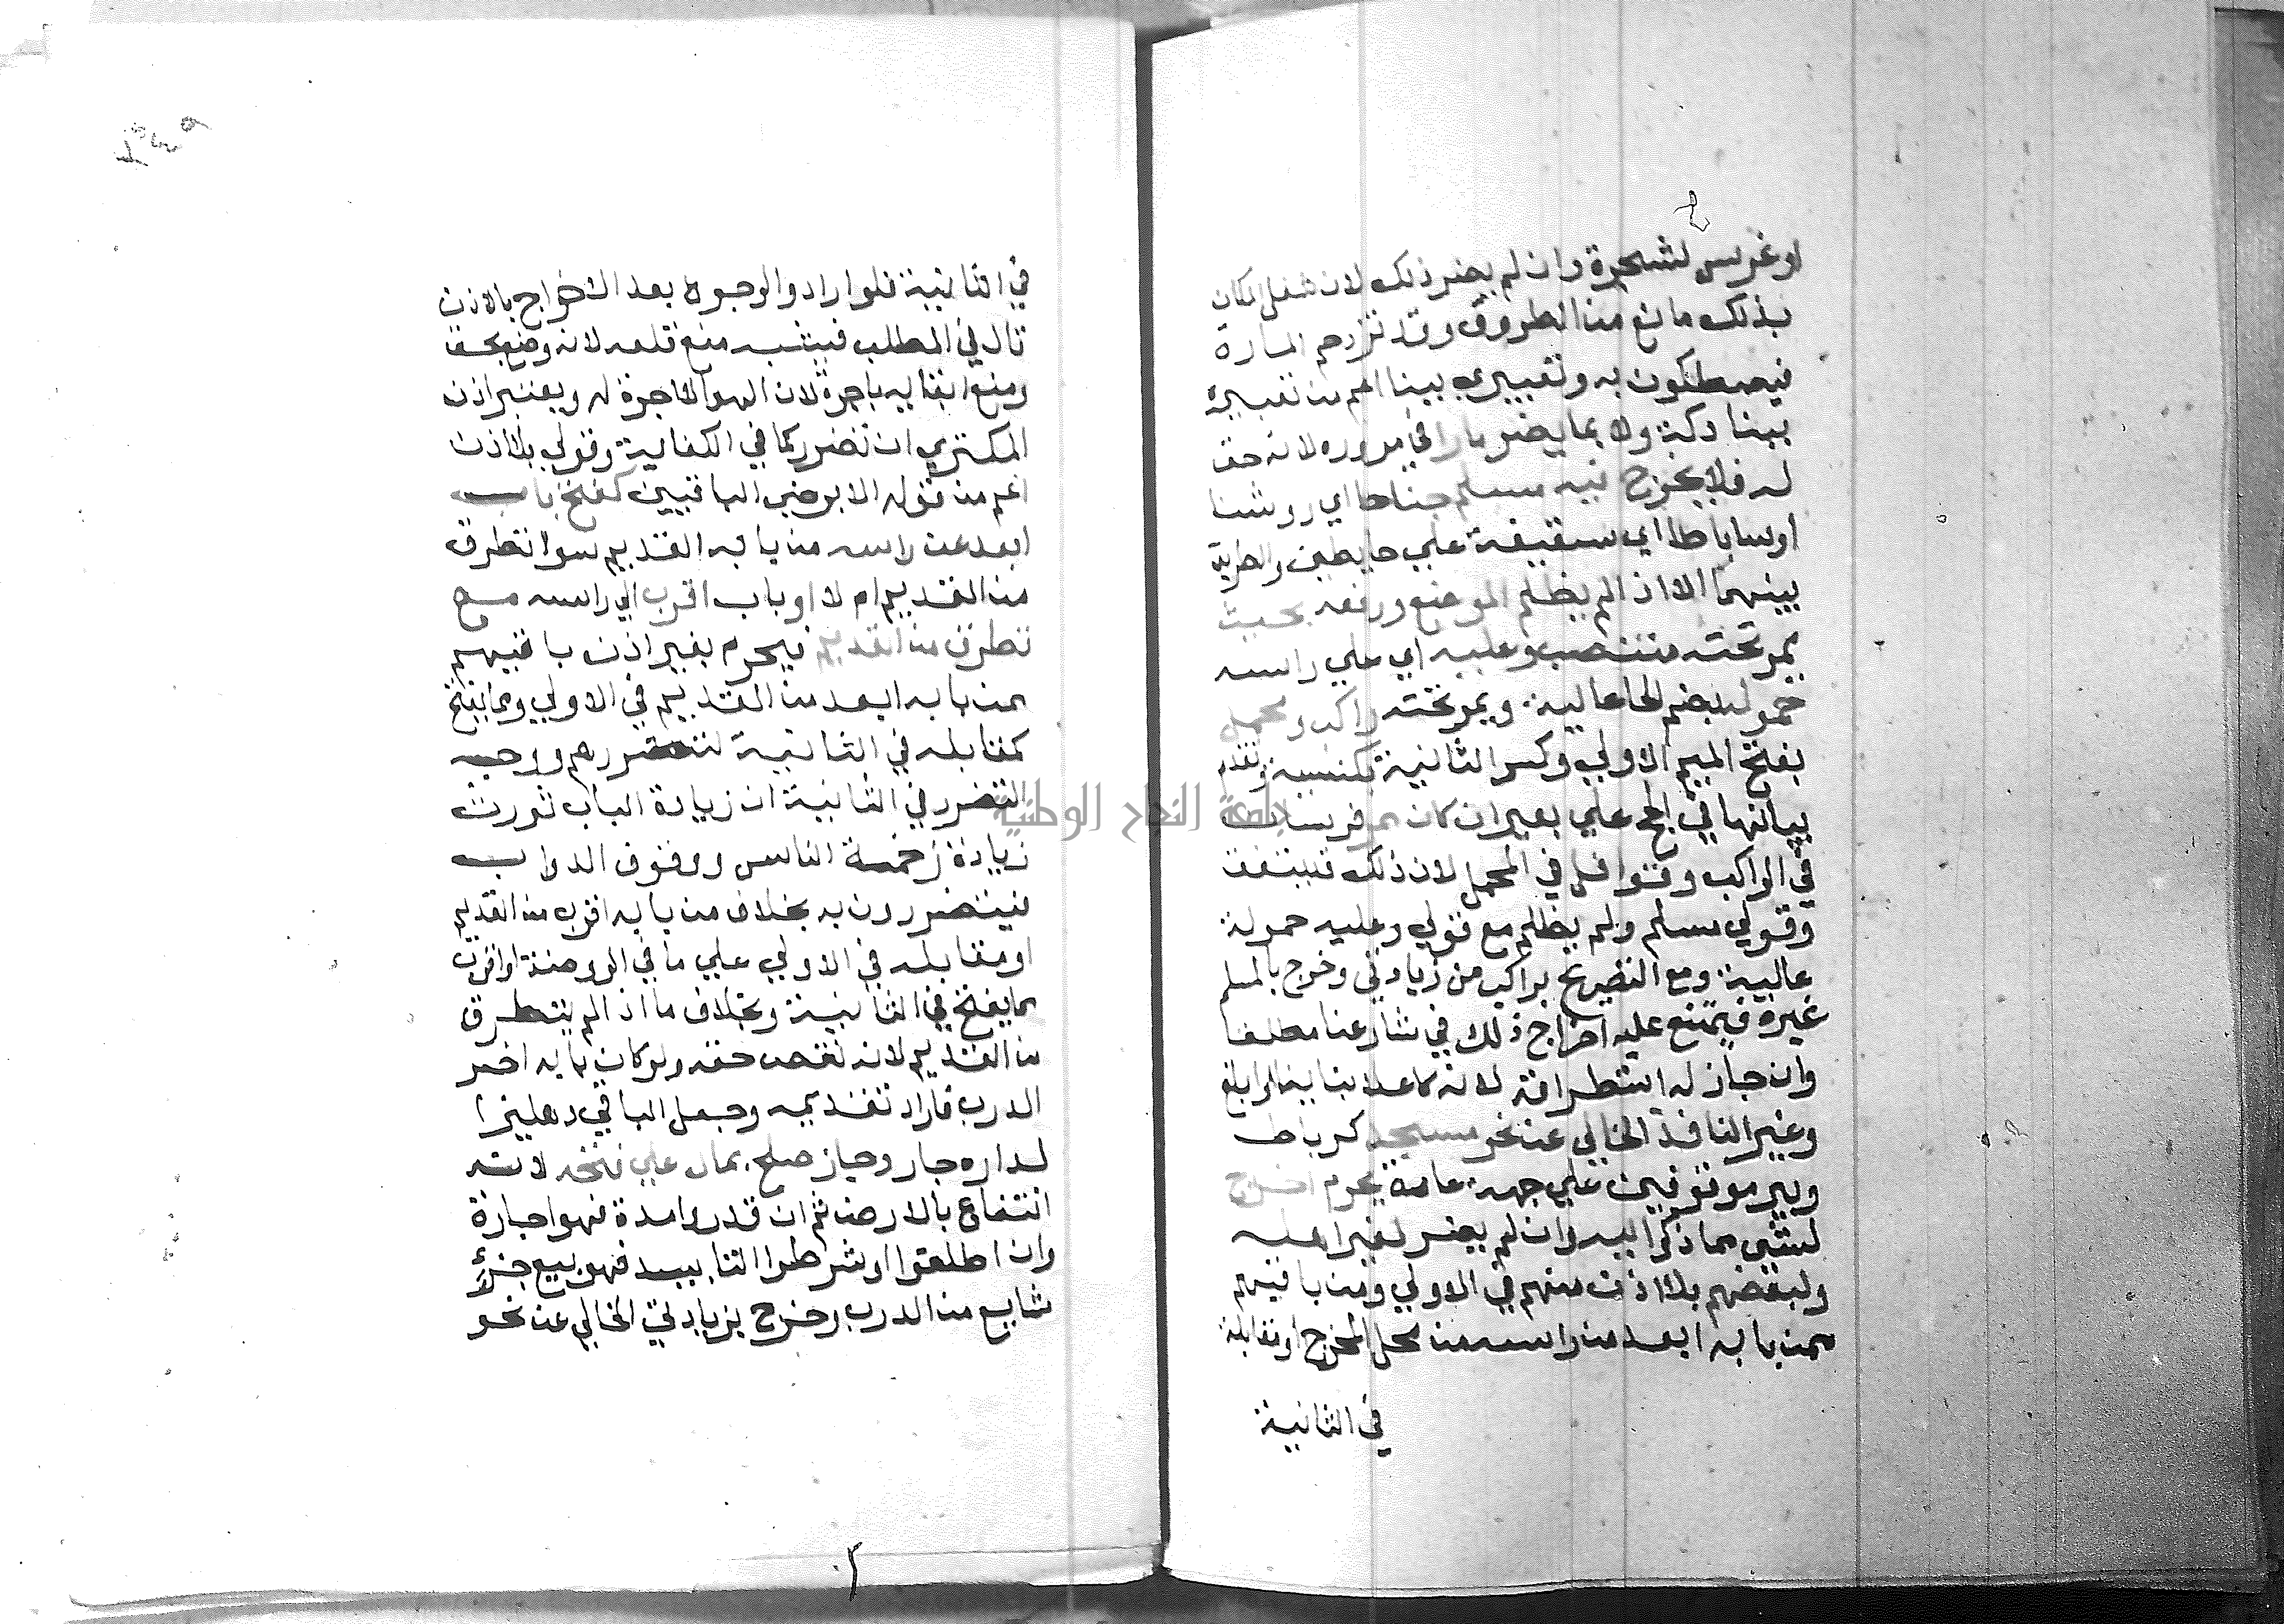 او غرس لشجرة وان لم يضر ذلك لان شغل المكان
بذلك مانع من الطروق وقد تزدحم المارة
فيصطكون به وتعبيري ببنا اعم من تعبيره
ببنا دكة ولا بما يضر مارا في مروره لانه حق
له فلا يخرج فيه مسلم جناحا اي روشنا
او ساباطا اي سقيفة علي حايطين والطريق
بينهما الا اذا لم يظلم الموضع ورفعه بحيث
يمر تحته منتصب وعليه اي علي راسه
حمولة بضم الحا عالية ويمر تحته راكب ومحمل
بفتح الميم الاولي وكسر الثانية بكنيسة وتقدم
بيانها في الحج علي بعير ان كان ممر فرسان
في الراكب وقوافل في المحمل لان ذلك قد يتفق
وقولي مسلم ولم يظلم مع قولي وعليه حمولة
عالية ومع التصريح براكب من زيادتي وخرج بالمسلم
غيره فيمتنع عليه اخراج ذلك في شارعنا مطلقا
وان جاز له استطراقه لانه كاعلا بنايه او ابلغ
وغير النافذ الخالي عن نحو مسجد كرباط
وبير موقوفين علي جهة عامة يحرم اخراج
لشي مما ذكر اليه وان لم يضر لغير اهله
ولبعضهم بلا اذن منهم في الاولي ومن باقيهم
ممن بابه ابعد من راسه من محل المخرج او مقابله
في الثانية
في الثانية فلو ارادوا الرجوع بعد الاخراج بالاذن
قال في المطلب فيشبه منع قلعه لانه وضع بحق
ومنع ابقايه باجرة لان الهوا لا اجرة له ويعتبر اذن
المكتري ان تضرر كما في الكفاية وقولي بلا اذن
اعم من قوله الا برضي الباقين كفتح باب
ابعد عن راسه من بابه القديم سوا تطرق
من القديم ام لا او باب اقرب الي راسه مع
تطرق من القديم فيحرم بغير اذن باقيهم
ممن بابه ابعد من القديم في الاولي ومما يفتح
كمقابله في الثانية لتضررهم ووجه
التضرر في الثانية ان زيادة الباب تورث
زيادة زحمة الناس ووقوف الدواب
فيتضررون به بخلاف من بابه اقرب من القديم
او مقابله في الاولي علي ما في الروضة او اقرب
مما يفتح في الثانية وبخلاف ما اذا لم يتطرق
من القديم لانه نقص حقه ولو كان بابه اخر
الدرب فاراد تقديمه وجعل الباقي دهليزا
لداره جاز وجاز صلح بمال علي فتحه لانه
انتفاع بالارض ثم ان قدروا مدة فهو اجارة
وان اطلقوا او شرطوا التابيد فهو بيع جزء
شايع من الدرب وخرج بزيادتي الخالي عن نحو
جامعة النجاح الوطنية